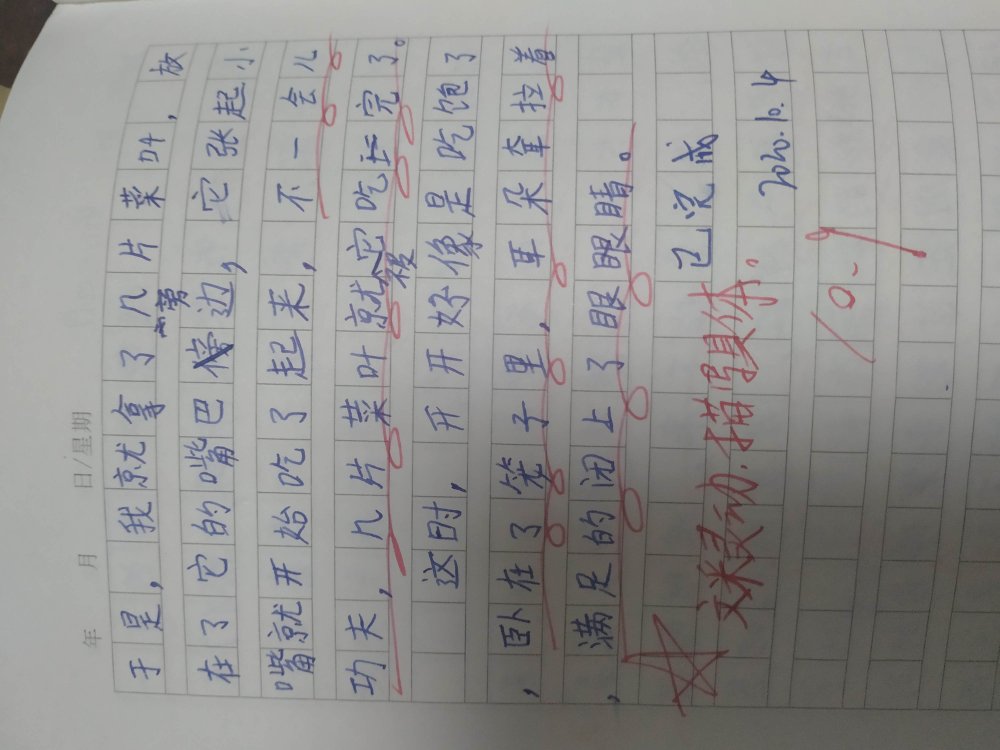 年 月 日/星期
于是，我就拿了几片菜叶，放
在了它的嘴巴旁边，它张起小
嘴就开始吃了起来，不一会儿
功夫，几片菜叶就被它吃完了。
这时，开开好像是吃饱了
，卧在了笼子里，耳朵耷拉着
，满足的闭上了眼眼睛。
已完成
2020.10.4
文灵动.描写具体.
10-9